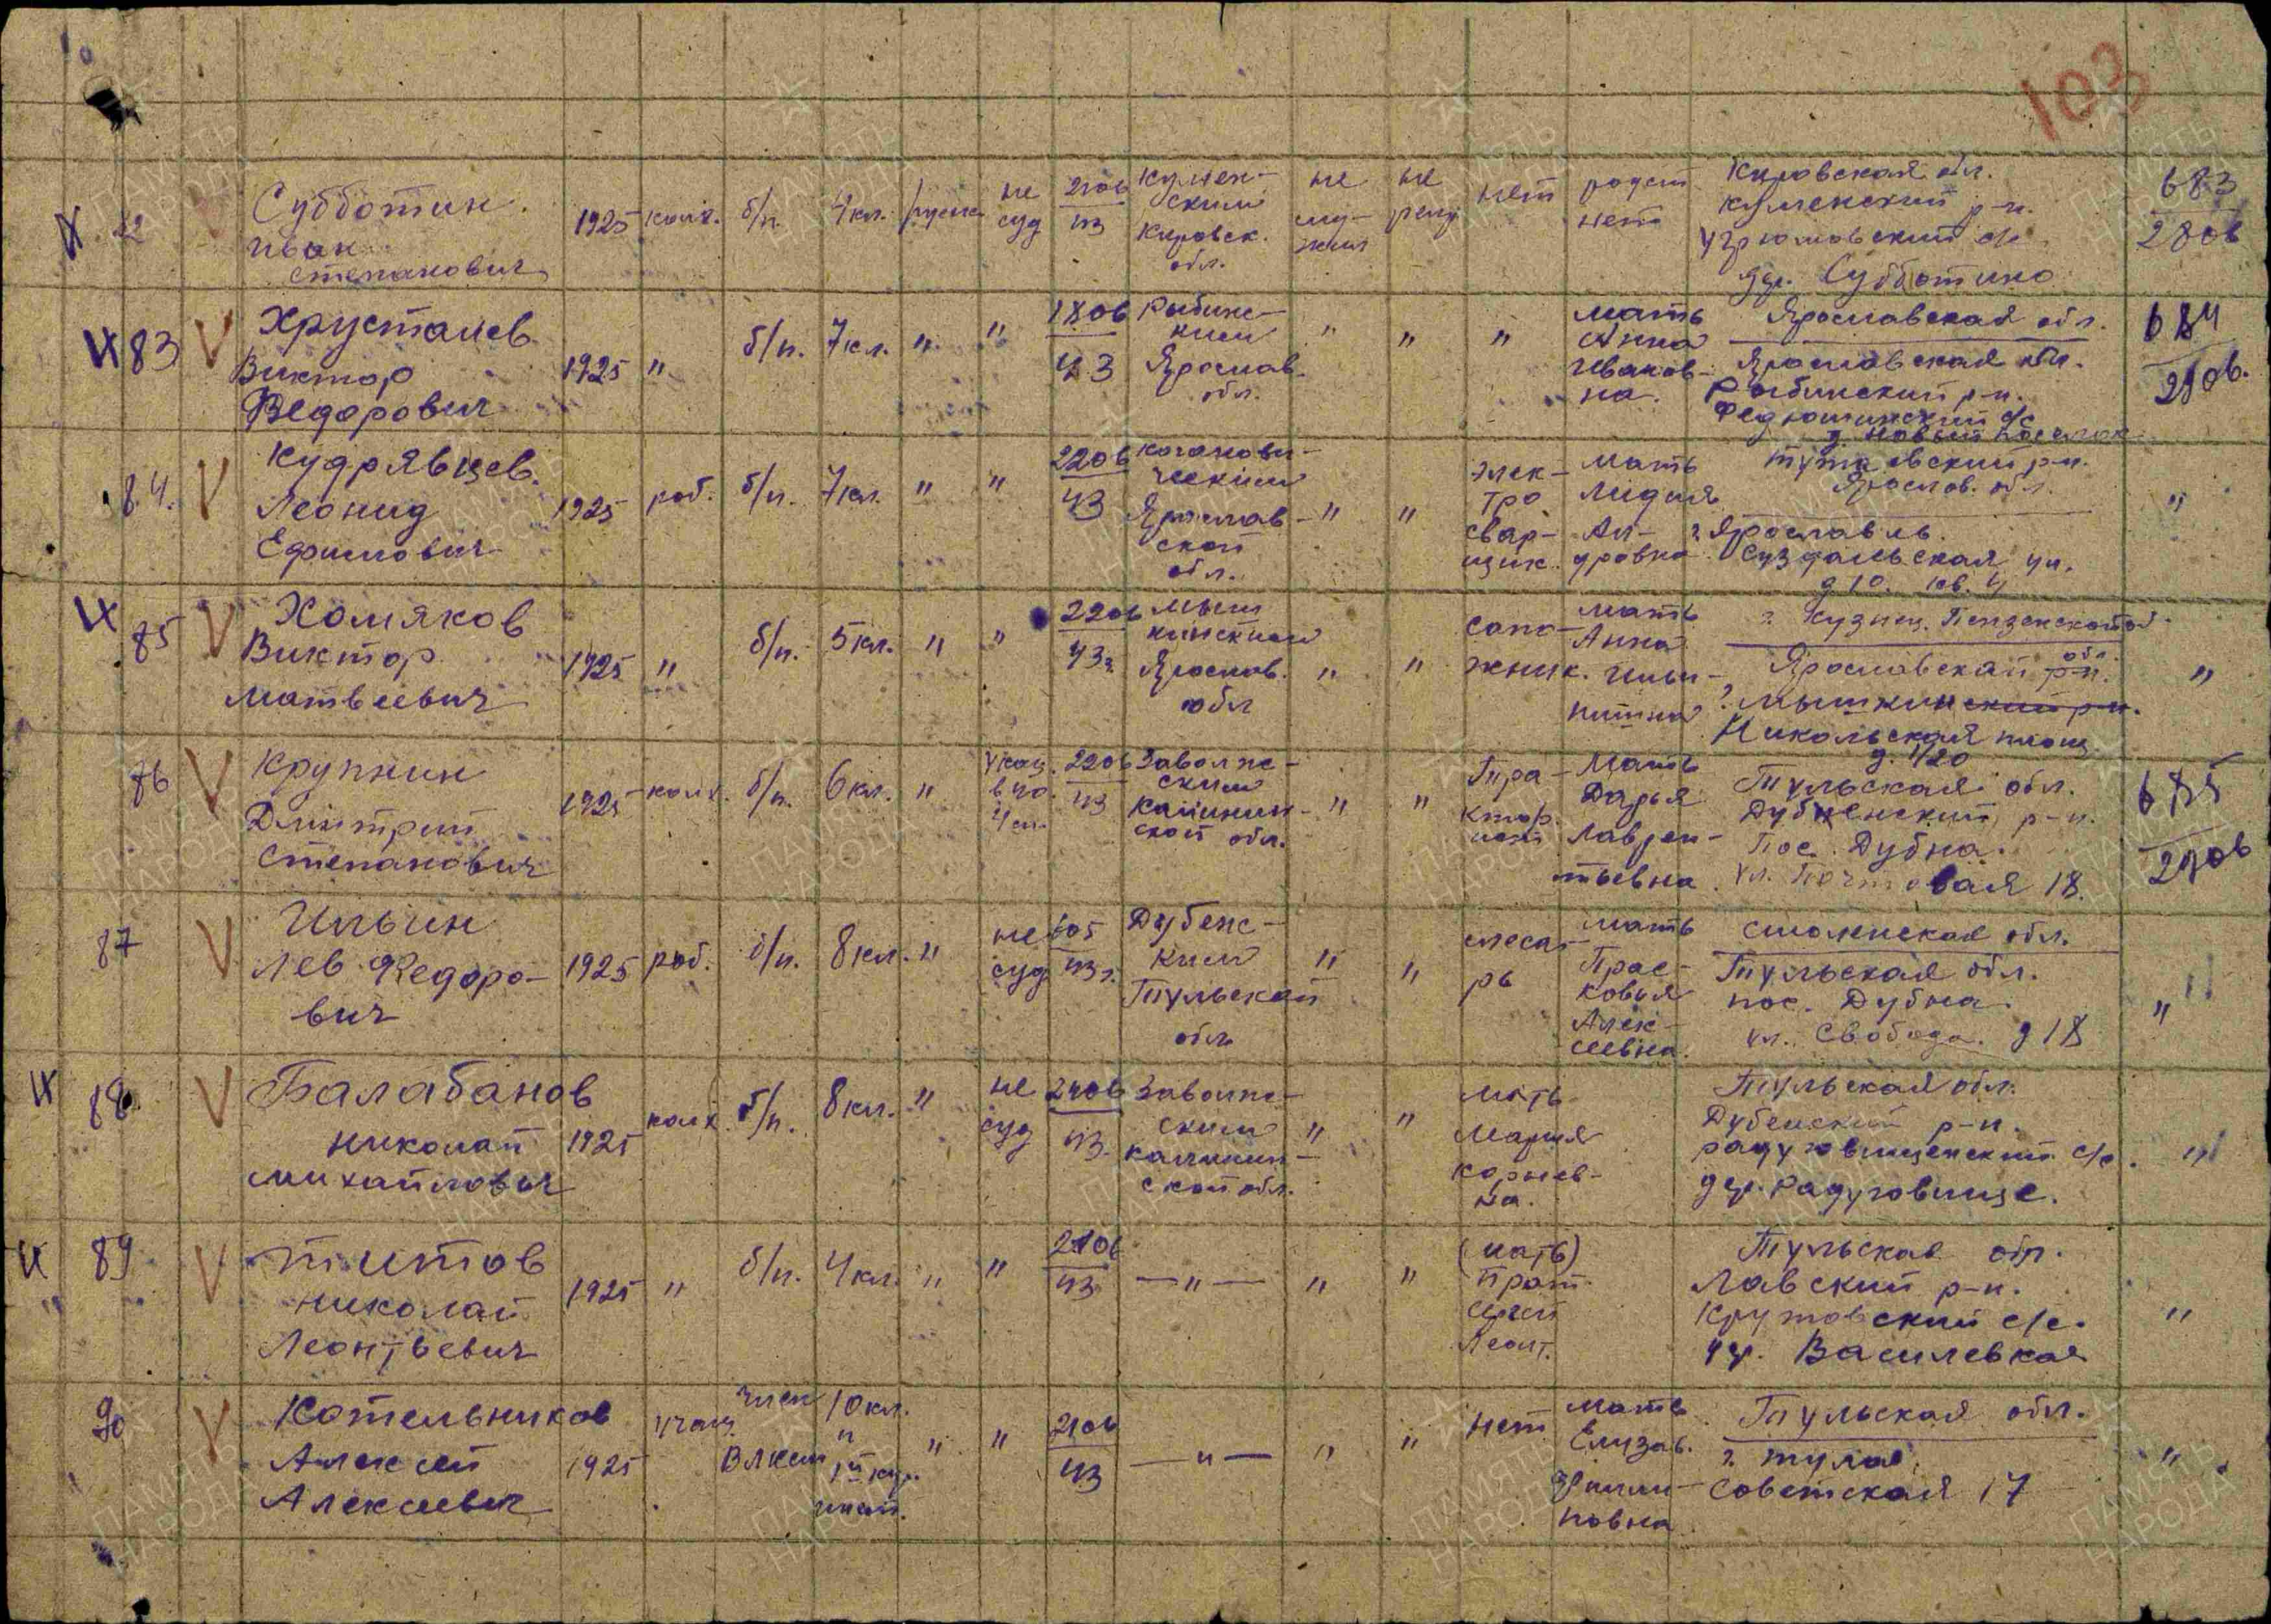 103
82 Субботин Иван Степанович 1925 колх. б/п. 4 кл. русск. не суд 2106 43 Куменским Кировск. обл. не служил не рану нет родст. нет Кировская обл. Куменский р-н. Угрюмовский с/с дер. Субботино 683 2806
83 V Хрусталев Виктор Федорович 1925 " б/п. 7 кл. " " 1806 43 Рыбинским Ярослав. обл. " " " мать Анна Ивановна. Ярославская обл. Ярославская обл. Рыбинский р-н. Федюшинский с/с д. Новый поселок 684 2806.
84. V Кудрявцев Леонид Ефимович 1925 раб. б/п. 7 кл. " " 2206 43 Ярославской обл. " " электросварщик. мать Лидия Ал-дровна Тутаевский р-н. Ярослав. обл. г. Ярославль. Суздальская ул. д 10. кв. 4 "
85 V Хомяков Виктор Матвеевич 1925 " б/п. 5 кл. " " 2206 43 г. Мышкинским Ярослав. обл " " сапожник. мать Анна г. Кузнец. Пензенской об. Ярославская обл. р-н. г. Мышкинский р-н. Никольская площ. д. 1/20 "
86 V Крупнин Дмитрий Степанович 1925 колх. б/п. 6 кл. " 2206 43 Заволжским Калининской обл. " " тракторист мать Дарья Лаврентьевна. Тульская обл. Дубненский р-н. Пос. Дубна. ул. Почтовая 18. 685 2906
87 V Ильин Лев Федорович 1925 раб. б/п. 8 кл. " не суд 605 43 г. Дубенским Тульской обл. " " слесарь мать Прасковья Алексеевна. Смоленская обл. Тульская обл. пос. Дубна. ул. Свобода. д 18 "
88. V Балабанов Николай Михайлович 1925 колх. б/п. 8 кл. " не суд 2406 43. Заволжским Калининской обл. " " мать Мария Корнеевна. Тульская обл. Дубенский р-н. Радуговищенский с/с. дер. Радуговище. "
89 V Титов Николай Леонтьевич 1925 " б/п. 4 кл. " " 2106 43 — " — " " (мать) Тульская обл. Лавский р-н. Крутовский с/с. дер. Василевка "
90 V Котельников Алексей Алексеевич 1925 учащ. член ВЛКСМ 10 кл. " " 2106 43 — " — " " нет мать Елизав. Филипповна Тульская обл. г. Тула. Советская 17 "
ПАМЯТЬ НАРОДА